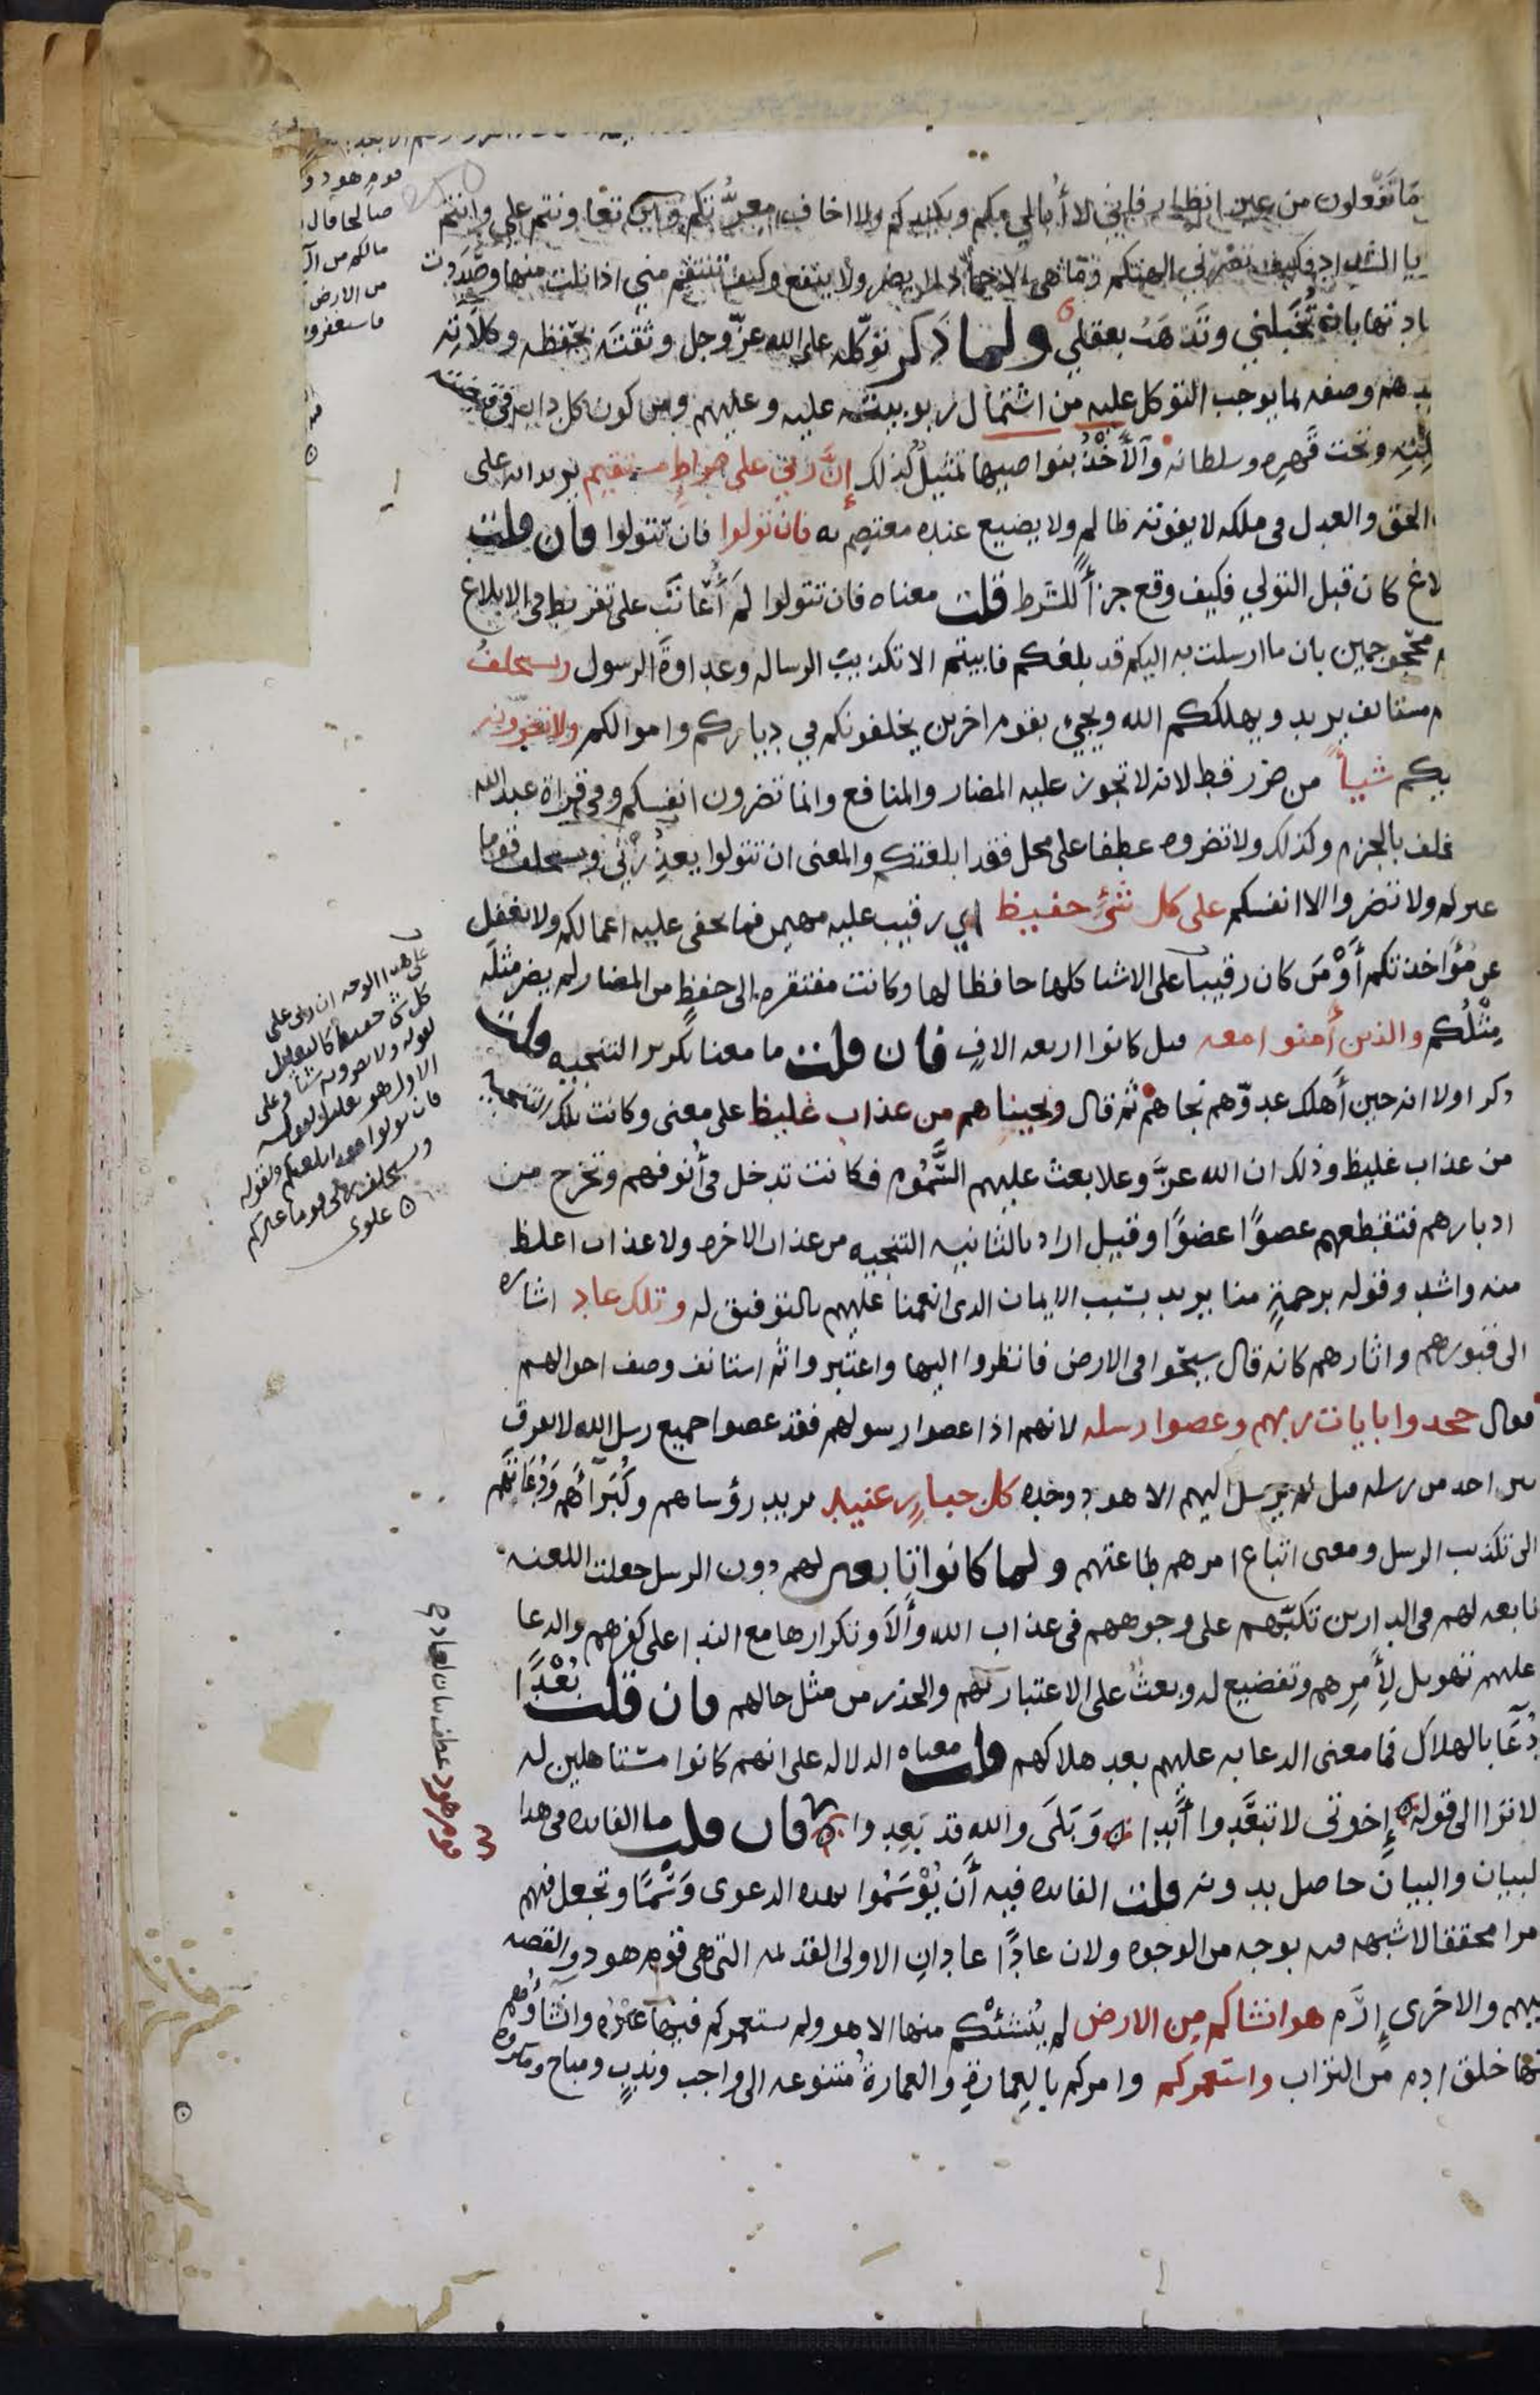 ما تفعلون من غير انظار فاني لا أبالي بكم وبكيدكم ولا اخاف معرتكم وان تعاونتم علي وانتم
الشداد فكيف تضرني الهتكم وما هي الا جماد لا يضر ولا ينفع وكيف تنتقم مني اذا نلت منها وصددت
بان تخبلني وتذهب بعقلي ولما ذكر توكله على الله عز وجل وثقته بحفظه وكلاءته
وصفه بما يوجب التوكل عليه من اشتمال ربوبيته عليه وعليهم ومن كون كل دابة في قبضته
وتحت قهره وسلطانه والأخذ بنواصيها تمثيل لذلك إن ربي على صراط مستقيم يريد انه على
الحق والعدل في ملكه لا يفوته ظالم ولا يضيع عنده معتصم به فان تولوا فان تتولوا فان قلت
لاغ كان قبل التولي فكيف وقع جزأ للشرط قلت معناه فان تتولوا لم أعاتب على تفريط في الابلاغ
محجوجين بان ما ارسلت به اليكم قد بلغكم فابيتم الا تكذيب الرسالة وعداوة الرسول ويستخلف
مستانف يريد ويهلككم الله ويجيء بقوم اخرين يخلفونكم في دياركم واموالكم ولا تضرونه
بكم شيأ من ضرر قط لانه لا تجوز عليه المضار والمنافع وانما تضرون انفسكم وفي قراة عبد الله
خلف بالجزم وكذلك ولا تضروه عطفا على محل فقد ابلغتكم والمعنى ان تتولوا يعذرني ويستخلف قوما
غيركم ولا تضروا الا انفسكم على كل شئ حفيظ اي رقيب عليه مهيمن فما تخفى عليه اعمالكم ولا يغفل
عن مؤاخذتكم أو من كان رقيبا على الاشيا كلها حافظا لها وكانت مفتقرة الى حفظه من المضار لم يضر مثله
مثلكم والذين أمنوا معه قيل كانوا اربعة الاف فان قلت ما معنا تكرير التنجيه قلت
ذكر اولا انه حين أهلك عدوهم نجاهم ثم قال ونجيناهم من عذاب غليظ على معنى وكانت تلك التنجيه
من عذاب غليظ وذلك ان الله عز وعلا بعث عليهم السموم فكانت تدخل في أنوفهم وتخرج من
ادبارهم فتقطعهم عضوا عضوا وقيل اراد بالثانيه التنجيه من عذاب الاخره ولا عذاب اغلظ
منه واشد وقوله برحمة منا يريد بسبب الايمان الذي انعمنا عليهم بالتوفيق له وتلك عاد اشاره
الى قبورهم واثارهم كانه قال سيحوا في الارض فانظروا اليها واعتبروا ثم استانف وصف احوالهم
فقال جحدوا بايات ربهم وعصوا رسله لانهم اذا عصوا رسولهم فقد عصوا جميع رسل الله لا نفرق
بين احد من رسله قيل لم يرسل اليهم الا هود وحده كل جبار عنيد يريد رؤساهم وكبرآئهم ودعاتهم
الى تكذيب الرسل ومعنى اتباع امرهم طاعتهم ولما كانوا تابعين لهم دون الرسل جعلت اللعنه
تابعه لهم في الدارين تكبهم على وجوههم في عذاب الله وألا وتكرارها مع الندا على كفرهم والدعا
عليهم تهويل لأمرهم وتفضيع له وبعث على الاعتبار بهم والحذر من مثل حالهم فان قلت بعدا
دعآ بالهلاك فما معنى الدعا به عليهم بعد هلاكهم قلت معناه الدلاله على انهم كانوا مستاهلين له
لا ترا الى قوله إخوتي لا تبعدوا أبدا وبلى والله قد بعدوا فان قلت ما الفايده في هذا
لبيان والبيان حاصل بدونه قلت الفايده فيه أن يوسموا بهذه الدعوى وشما وتجعل فيهم
مرا محققا لا شبهه فيه بوجه من الوجوه ولان عادا عادان الاولى القديمه التي هي قوم هود والقصه
فيهم والاخرى إرم هو انشاكم من الارض لم ينشئكم منها الا هو ولم يستعمركم فيها غيره وانشاؤهم
منها خلق ادم من التراب واستعمركم وامركم بالعمارة والعمارة متنوعه الى واجب وندب ومباح ومكروه
قوم هود و
صالحا قال
مالكم من
من الارض
فاستغفروه
على هذا الوجه ان ربي على
كل شي حفيظ كالتعليل
لقوله ولا تضرونه شيأ وعلى
الاول هو
فان تولوا فقد ابلغتكم ولقوله
ويستخلف ربي قوما غيركم
علوي
قوم هود عطف بيان لعاد